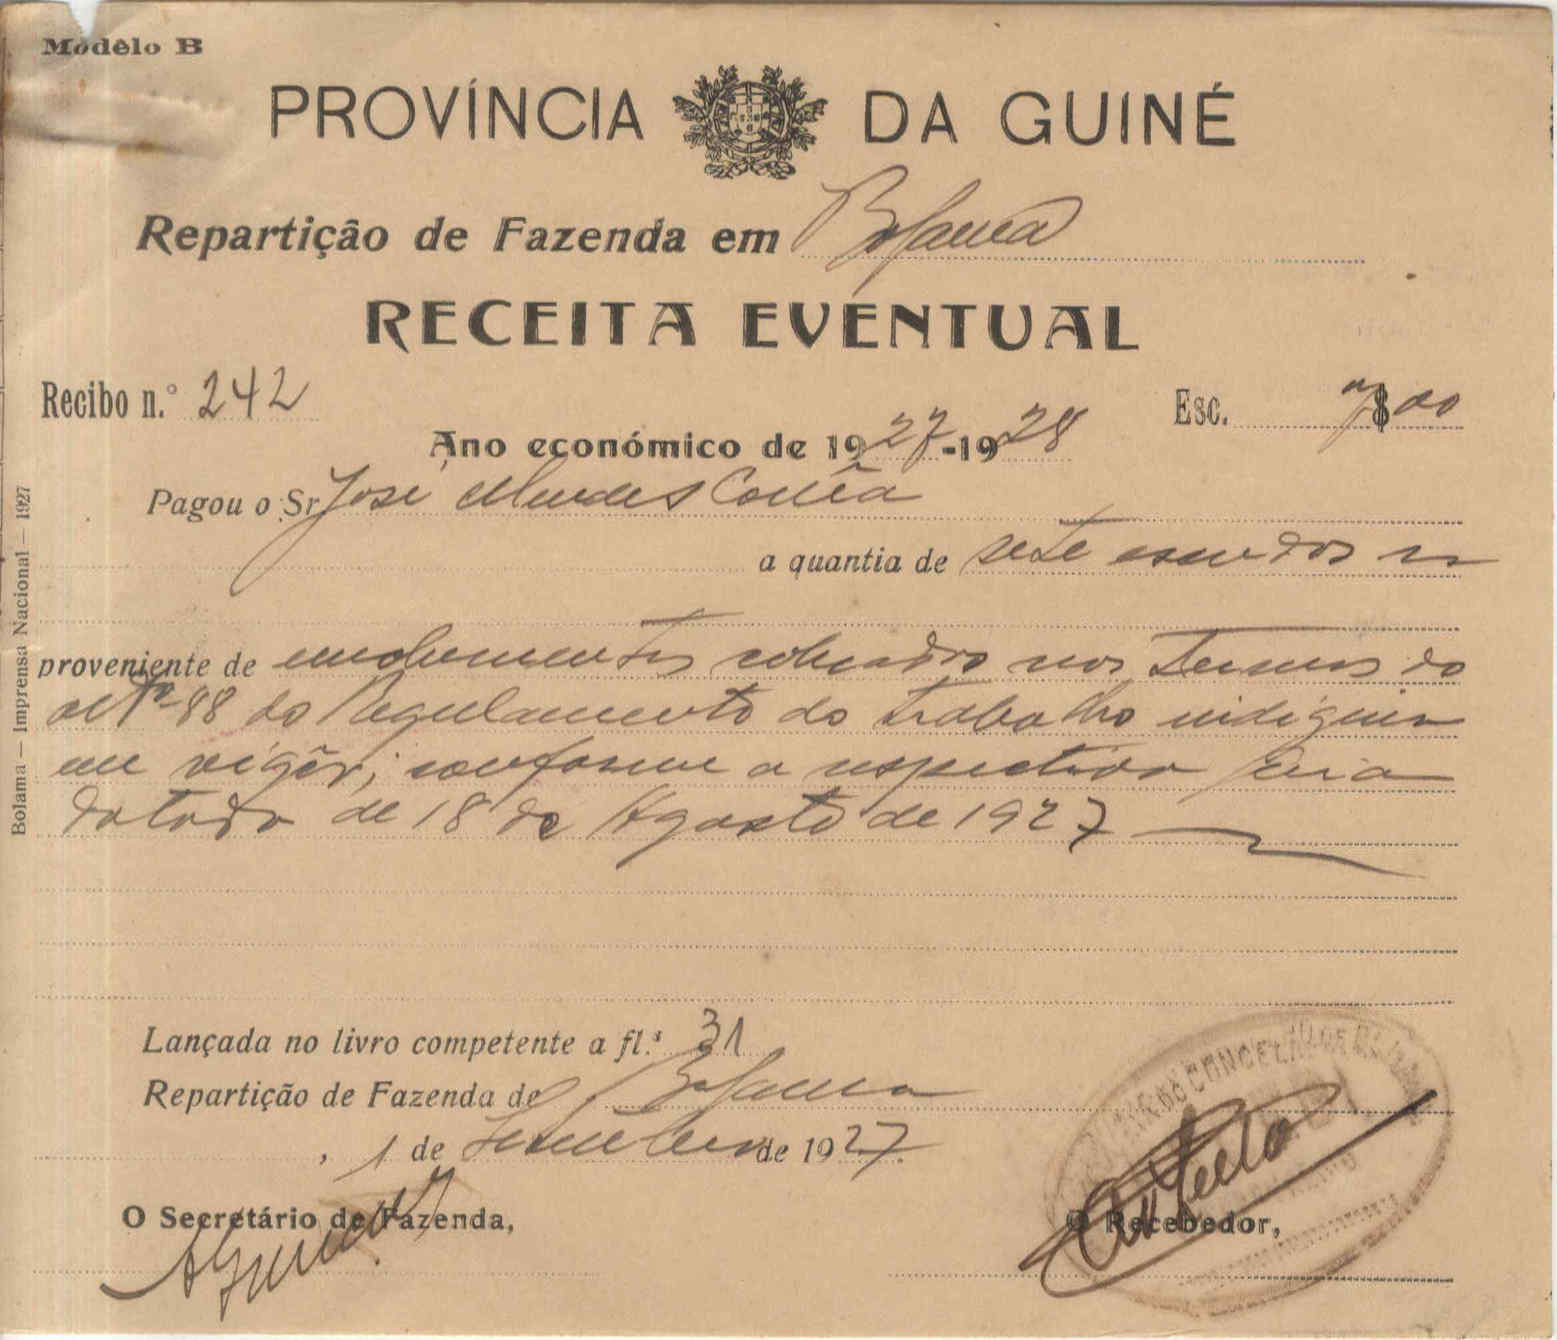 Modêlo B
PROVÍNCIA DA GUINÉ
Repartição de Fazenda em Bolama
RECEITA EVENTUAL
Recibo n.° 242
Esc. 7$00
Ano económico de 1927-1928
Pagou o Sr. José Mendes Corrêa
a quantia de sete escudos
proveniente de emolumentos cobrados nos termos do
artº 88 do Regulamento do trabalho indigena
em vigôr; conforme a respectiva guia
datada de 18 de Agosto de 1927
Lançada no livro competente a fl.ˢ 31
Repartição de Fazenda de Bolama
, 1 de Setembro de 1927.
O Secretário de Fazenda,
O Recebedor,
Bolama — Imprensa Nacional — 1927